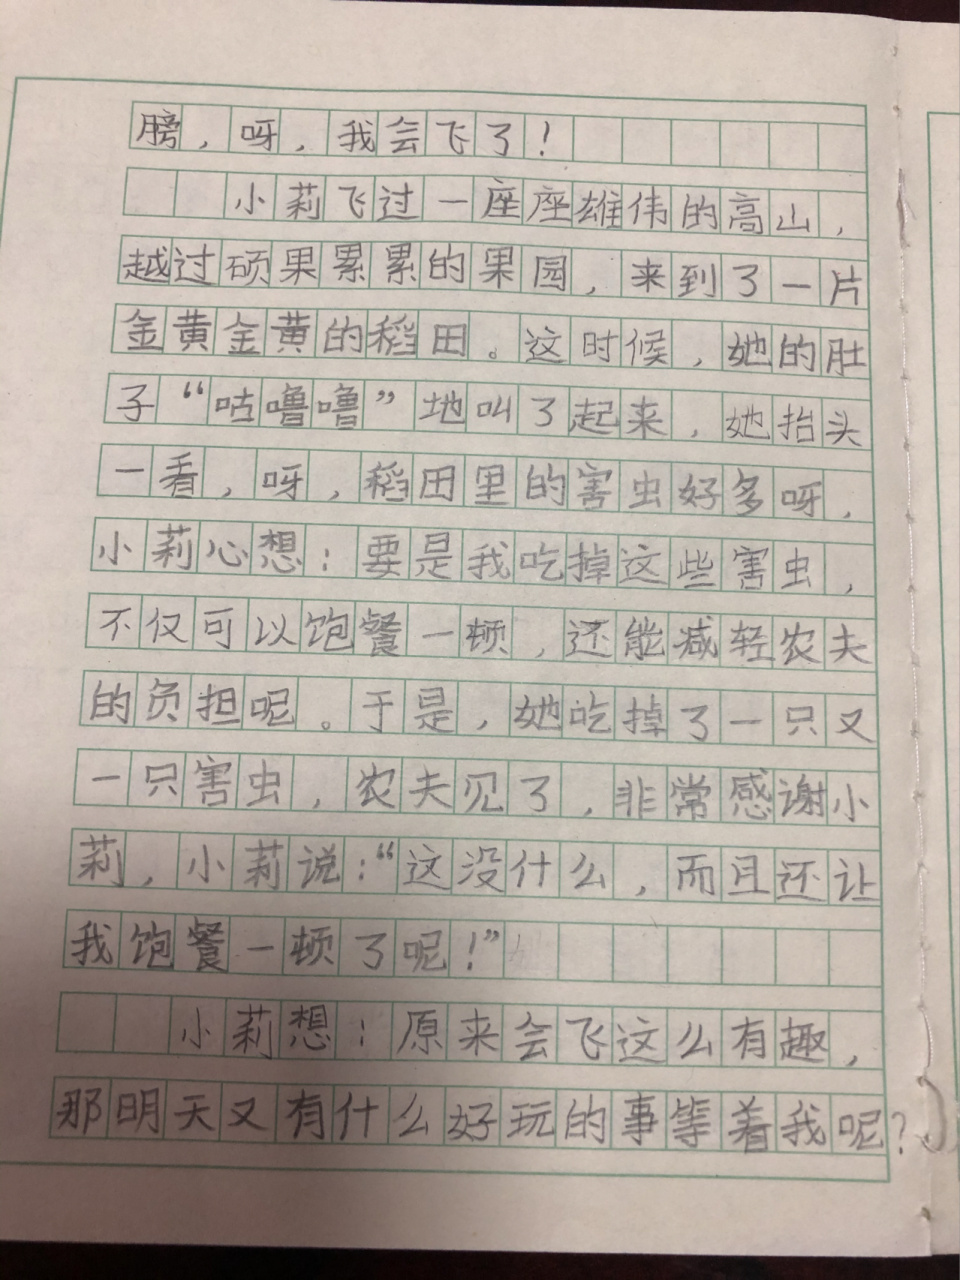 膀，呀，我会飞了！
小莉飞过一座座雄伟的高山，
越过硕果累累的果园，来到了一片
金黄金黄的稻田。这时候，她的肚
子“咕噜噜”地叫了起来，她抬头
一看，呀，稻田里的害虫好多呀，
小莉心想：要是我吃掉这些害虫，
不仅可以饱餐一顿，还能减轻农夫
的负担呢。于是，她吃掉了一只又
一只害虫，农夫见了，非常感谢小
莉，小莉说：“这没什么，而且还让
我饱餐一顿了呢！”
小莉想：原来会飞这么有趣，
那明天又有什么好玩的事等着我呢？